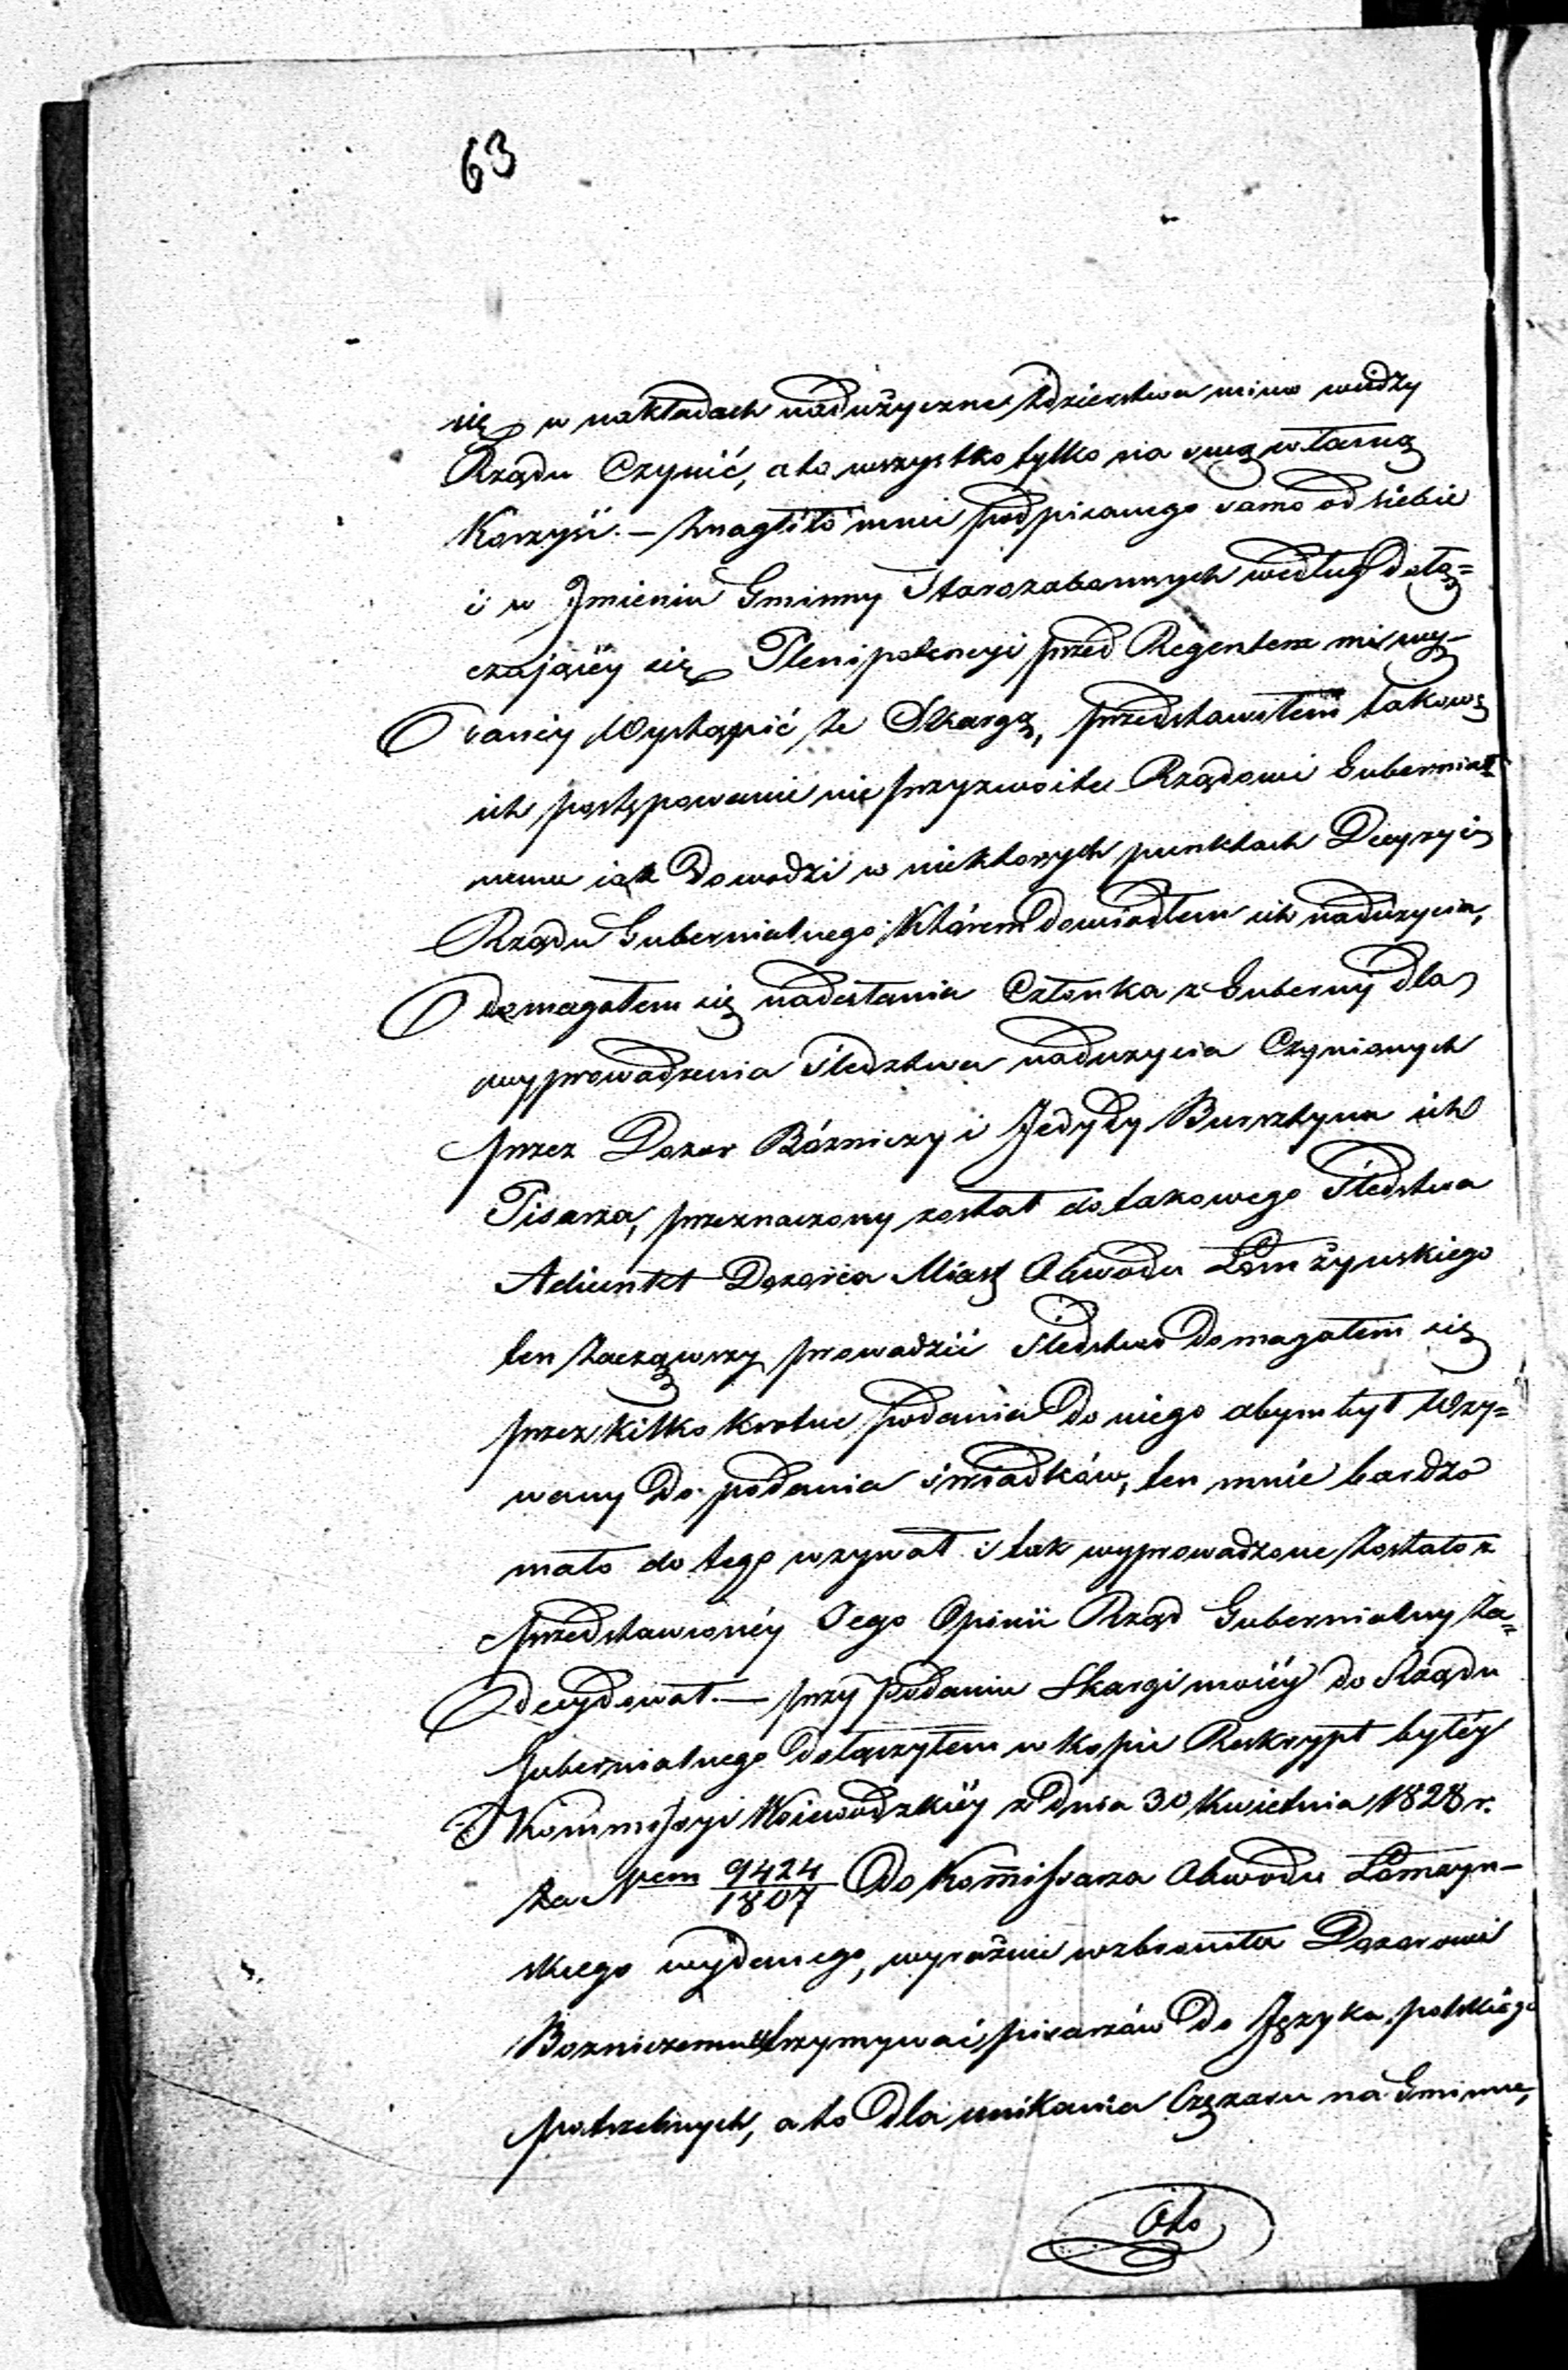 63
się w nakładach nadużyczne zdzierstwa mimo wiedzy
Rządu Czynić, a to wszystko tylko na swą własną
Korzyść. — Znagliło mnie podpisanego samo od siebie
i w Jmieniu Gminny Starozakonnych według dołą=
czaiącéy się Plenipotencyi przed Regentem mi wy-
daney Wystąpić ze Skargą, przedstawiłem takowe
ich postępowanie nie przyzwoite Rządowi Gubernial
nemu iak dowodzi w niektorych punktach Decyzyia
Rządu Gubernialnego, Którem dowiodłem ich nadużycia,
domagałem się nadesłania Członka z Gubernij dla
wyprowadzenia śledztwa nadużycia Czynionych
przez Dozor Bóżniczy i Jedydy Bursztyna ich
Pisarza, przeznaczony został do takowego śledstwa
Adiunkt Dozorca Miast Obwodu Łomżyńskiego
ten zacząwszy prowadzić śledstwo domagałem się
przez kilko krotne podania do niego abym był Wzy=
wany do podania świadków, ten mnie bardzo
mało do tego wzywał i tak wyprowadzone zostało z
przedstawionéy Jego Opinii Rząd Gubernialny za=
decydował. — przy podaniu Skargi moiéy do Rządu
Gubernialnego dołączyłem w kopii Reskrypt byłéy
Kommissyi Woiewodzkiéy z dnia 30 Kwietnia 1828 r.
za Nrem 9424/1807 do Kommissarza Obwodu Łomżyn-
skiego wydanego, wyraźnie wzbroniła Dozorowi
Bozniczemu utrzymywać pisarzów do Języka polskiego
potrzebnych, a to dla unikania Cięzaru na Gminne,
Oto